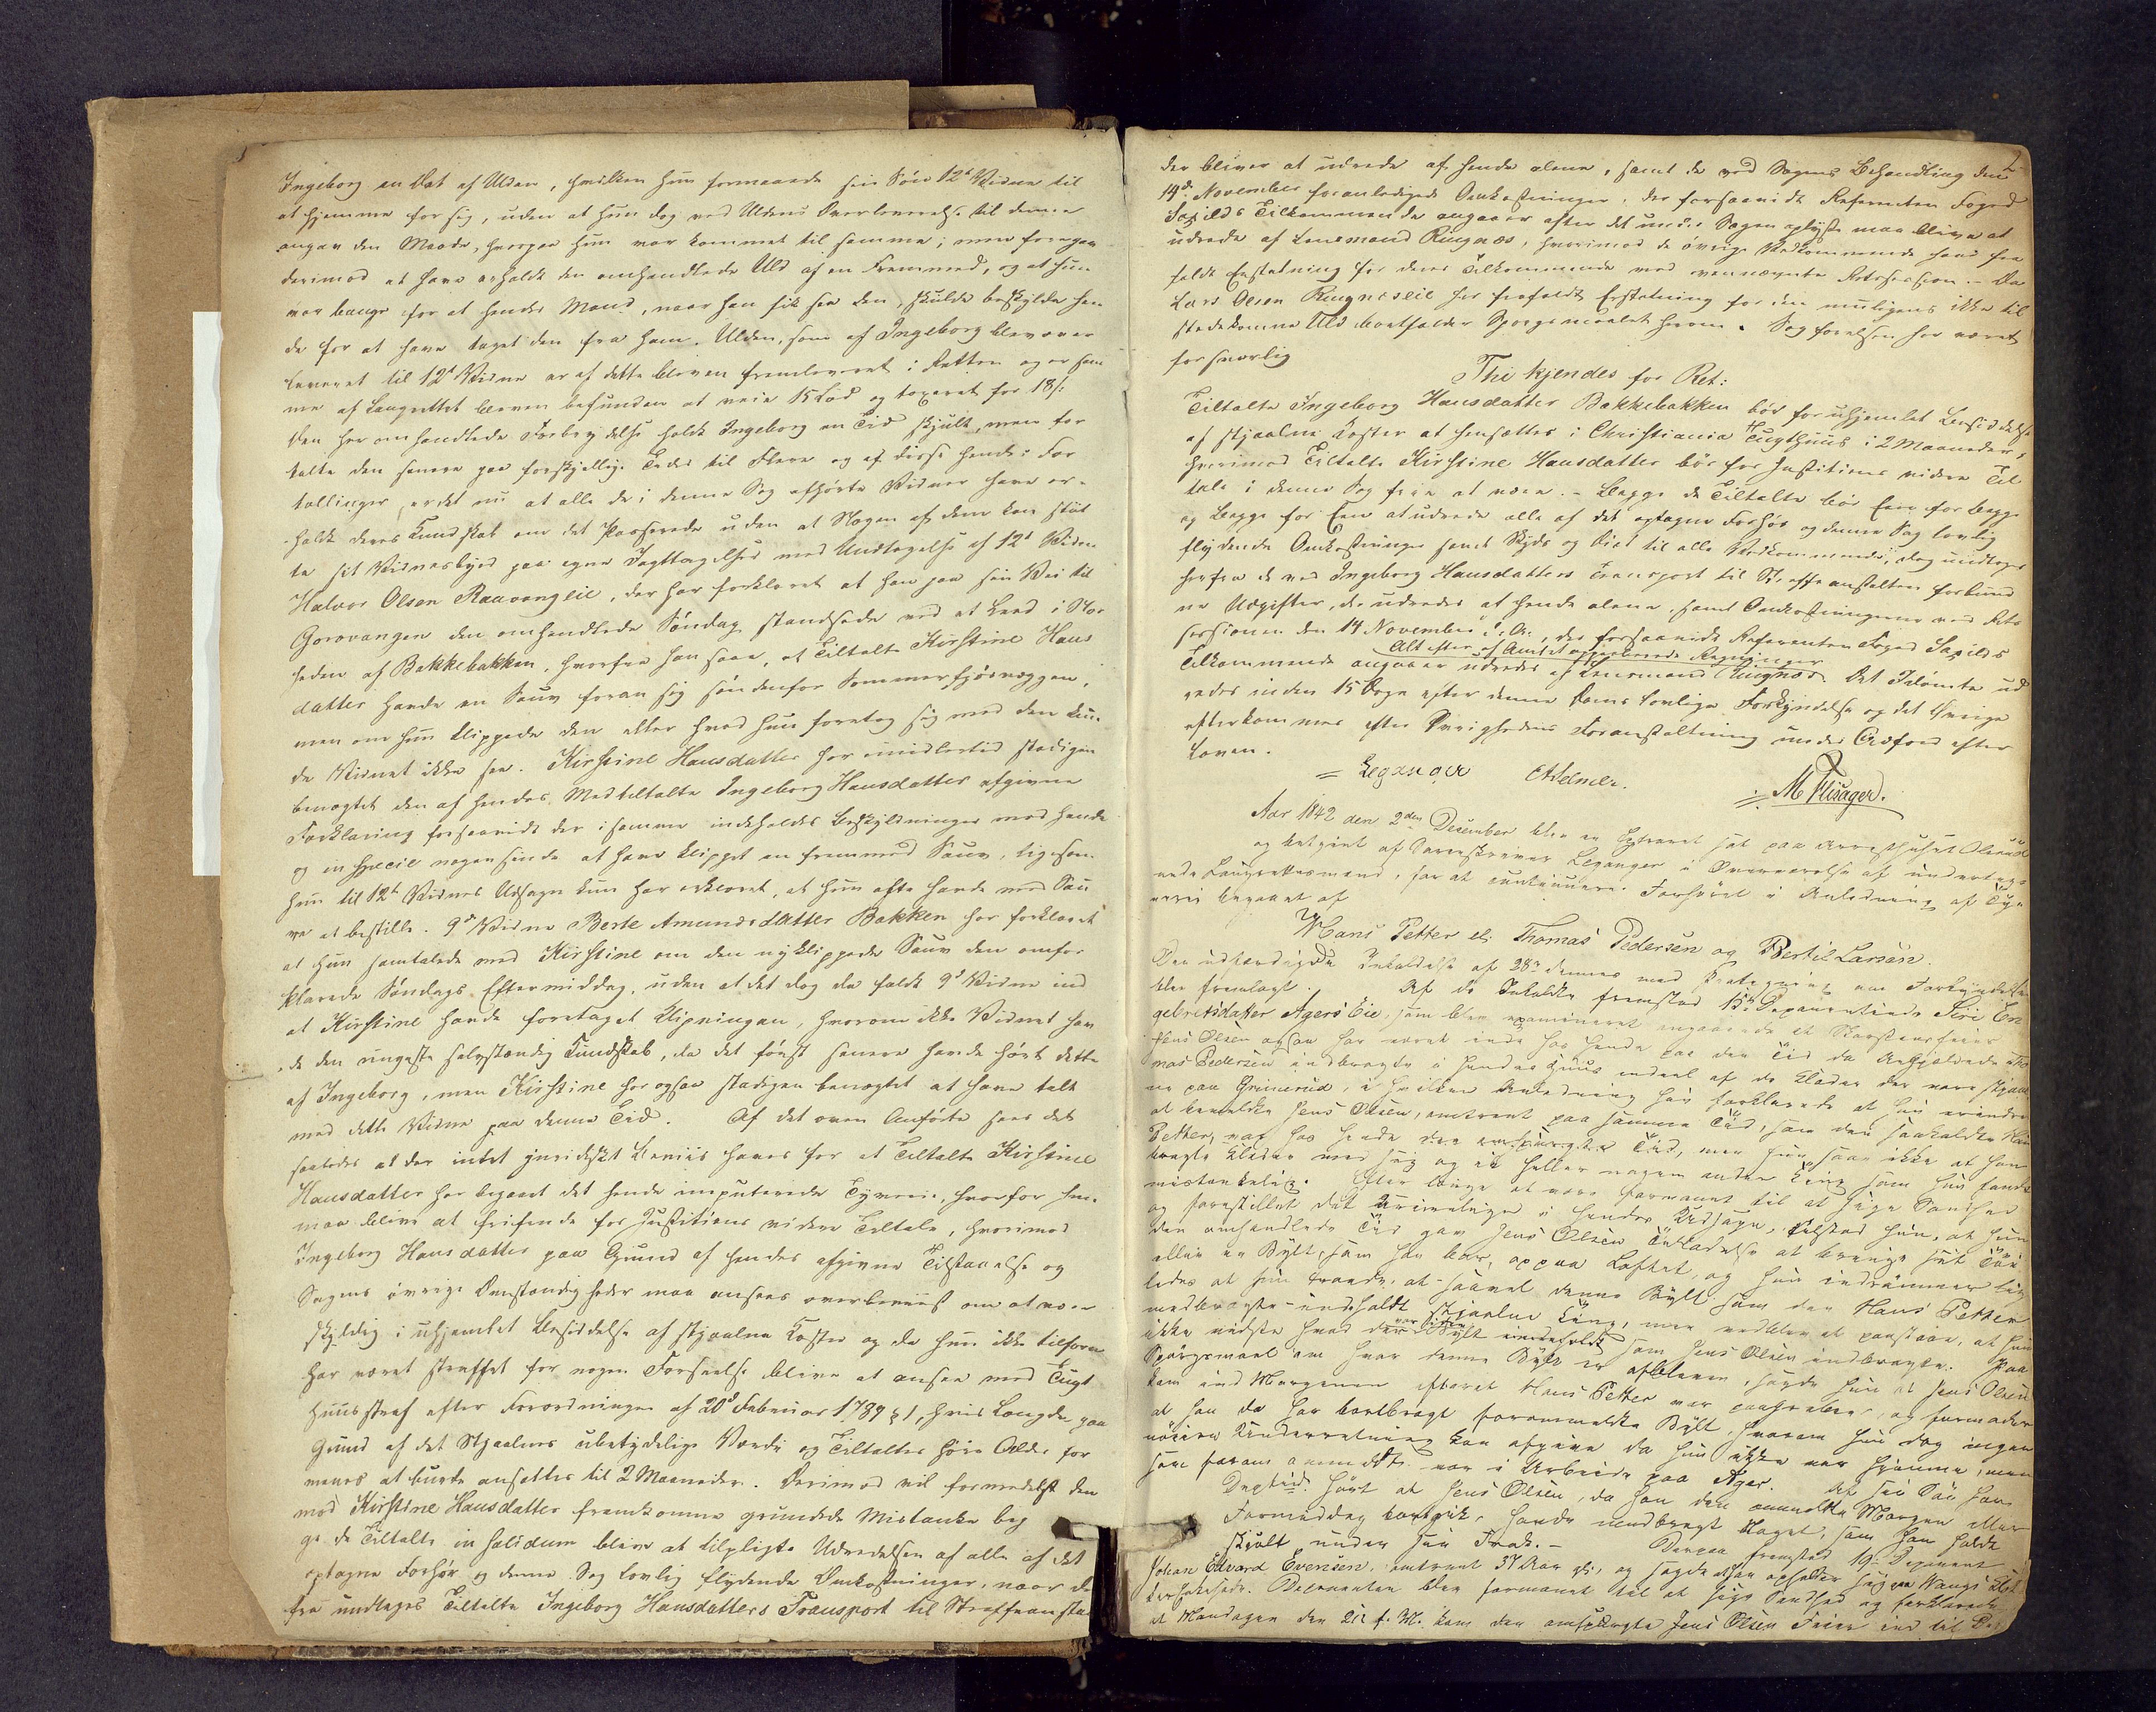 Ingeborg en Dot af Ulden, hvilken hun formaaede sin Søn 12te Vidne til
at hjemme for sig, uden at hun dog ved Uldens Overleverelse til denne
angav den Maade, hvorpaa hun var kommet til samme; men foregav
derimod at have erholdt den omhandlede Uld af en Fremmed, og at hun
var bange for at hendes Mand, naar han fik see den, skulde beskylde hen
de for at have taget den fra ham. Ulden, som af Ingeborg blev over
leveret til 12te Vidne er af dette bleven fremleveret i Retten og er sam
me af Laugrettet bleven befunden at veie 15 Lod og taxeret for 18 s.
Den her omhandlede Forbrydelse holdt Ingeborg en Tid skjult, men for
talte den senere paa forskjellige Tider til Flere og af disse hendes For
tællinger, er det nu at alle de i denne Sag afhørte Vidner have er-
holdt deres Kundskab om det Passerede uden at Nogen af dem kan støt
te sit Vidnesbyrd paa egne Iagttagelser med Undtagelse af 12te Vidne
Halvor Olsen Raavangeie, der har forklaret at han paa sin Vei til
Gorovangen den omhandlede Søndag standsede ved et Leed i Nor
heden af Bakkebakken, hvorfra han saae, at Tiltalte Kirstine Hans
datter havde en Sauv foran sig søndenfor Sommerfjøsvæggen,
men om hun klippede den eller hvad hun foretog sig med den kun
de Vidnet ikke see. Kirstine Hansdatter har imidlertid stadigen
benægtet den af hendes Medtiltalte Ingeborg Hansdatter afgivne
Forklaring forsaavidt der i samme indeholdes Beskyldninger mod hende
og in specie nogensinde at have klippet en fremmed Sauv, ligesom
hun til 12te Vidnes Udsagn kun har erklæret, at hun ofte havde med Sau
ve at bestille. 9de Vidne Berte Amundsdatter Bakken har forklaret
at hun samtalede med Kirstine om den nyklippede Sauv den omfor
klarede Søndags Eftermiddag, uden at det dog da faldt 9de Vidne ind
at Kirstine havde foretaget Klipningen, hvorom ikke Vidnet hav
de den ringeste selvstændig Kundskab, da det først senere havde hørt dette
af Ingeborg, men Kirstine har ogsaa stadigen benægtet at have talt
med dette Vidne paa denne Tid. Af det oven Anførte sees det
saaledes at der intet juridiskt Beviis haves for at Tiltalte Kirstine
Hansdatter har begaaet det hende imputerede Tyverie, hvorfor hun
maa blive at frifinde for Justitiens videre Tiltale, hvorimod
Ingeborg Hansdatter paa Grund af hendes afgivne Tilstaaelse og
Sagens øvrige Omstændigheder maa ansees overbeviist om at være
skyldig i uhjemlet Besiddelse af stjaalne Koster og da hun ikke tilforn
har været straffet for nogen Forseelse blive at ansee med Tugt
huusstraf efter Forordningen af 20de Februar 1789 § 1, hvis Længde paa
Grund af det Stjaalnes ubetydelige Værdi og Tiltaltes høie Alder for
menes at burde ansættes til 2 Maaneder. Derimod vil formedelst den
mod Kirstine Hansdatter fremkomne grundede Mistanke beg
ge de Tiltalte in solidum blive at tilpligte Udredelsen af alle af det
optagne Forhør og denne Sag lovlig flydende Omkostninger, naar der
fra undtages Tiltalte Ingeborg Hansdatters Transport til Straffeansta
2
der bliver at udrede af hende alene, samt de ved Sagens Behandling den
14de November foranledigede Omkostninger, der forsaavidt Referenten Foged
Saxilds Tilkommende angaaer efter det under Sagen oplyste maa blive at
udrede af Lensmand Ringnæs, hvorimod de øvrige Vedkommende have fra
faldt Erstatning for deres Tilkommende ved nævnte Retssession. - Da
Lars Olsen Ringneseie har frafaldt Erstatning for den muligens ikke til
stedekomne Uld bortfalder Spørgsmaalet herom. Sagførelsen har været
forsvarlig
Thi kjendes for Ret:
Tiltalte Ingeborg Hansdatter Bakkebakken bør for uhjemlet Besiddelse
af stjaalne Koster at hensættes i Christiania Tugthuus i 2 Maaneder,
hvorimod Tiltalte Kirstine Hansdatter bør for Justitiens videre Til
tale i denne Sag frie at være. - Begge de Tiltalte bør Een for begge
og Begge for Een at udrede alle af det optagne Forhør og denne Sag lovlig
flydende Omkostninger samt Skyds og Diæt til alle Vedkommende, dog undtages
herfra de ved Ingeborg Hansdatters Transport til Straffeanstalten forbund
ne Udgifter, der udredes af hende alene, samt Omkostningerne ved Rets
sessionen den 14 November d. A., der forsaavidt Referenten Foged Saxilds
Alt efter af Amtet approberede Regninger
Tilkommende angaaer udredes af Lensmand Ringnæs. Det Idømte ud
redes inden 15 Dage efter denne Doms lovlige Forkyndelse og det Øvrige
efterkommes efter Øvrighedens Foranstaltning under Adfærd efter
Loven.
= Leganger M Flisager.
Aar 1842 den 2den December blev en Extraret sat paa Arresthuset Olerud
og betjent af Sorenskriver Leganger i Overværelse af underteg-
nede Laugrettesmænd, for at continuere Forhøret i Anledning af Ty-
verie begaaet af
Hans Petter eller Thomas Pedersen og Bertil Larsen.
Den udfærdigede Indkaldelse af 28de dennes med Paategning om Forkyndelse
blev fremlagt. Af de Indkaldte fremstod 15de Deponentinde Siri En
gebretsdatter Agers Eie, som blev examineret angaaende at Skorsteensfeier
Jens Olsen ogsaa har været inde hos hende paa den Tid da Angjældende Tho
mas Pedersen indbragte i hendes Huus endeel af de Klæder der vare stjaal
ne paa Grinerud, i hvilken Anledning hun forklarede at hun erindrer
at bemeldte Jens Olsen, omtrent paa samme Tid, som den saakaldte Hans
Petter, var hos hende den omspurgte Tid, men hun saae ikke at han
bragte Klæder med sig og ei heller nogen anden Ting som hun fandt
mistænkelig. Efter længe at være formanet til at sige Sandhed
og forestillet det Urimelige i hendes Udsagn, tilstod hun, at hun
den omhandlede Tid gav Jens Olsen Tilladelse at bringe sit Tøi
eller en Bylt, som han bar, op paa Loftet, og hun indrømmer lige
ledes at hun troede, at saavel denne Bylt som den Hans Petter
medbragte indeholdt stjaalne Ting, men vedblev at paastaae, at hun
ikke vidste hvad der var i den Bylt som Jens Olsen indbragte. Paa
Spørgsmaal om hvor denne Bylt er afbleven, sagde hun at Jens Olsen
kom ind Morgenen efterat Hans Petter var paagreben, og formoder
at han da har bortbragt formeldte Bylt, hvorom hun dog ingen
nøiere Underretning kan afgive da hun ikke var hjemme, men
som foranmeldt var i Arbeide paa Ager. Af sin Søn har
Deptinde hørt at Jens Olsen, da han den anmeldte Morgen eller
Formiddag bortgik, havde medbragt Noget, som han holdt
skjult under sin Frak. - Derpaa fremstod 19de Deponent
Johan Edvard Evensen, omtrent 37 Aar gl., og sagde at han opholder sig paa Wangs
Deponenten blev formanet til at sige Sandhed og forklarede
at Mandagen den 21de f. M. kom den omspurgte Jens Olsen Feier ind til De